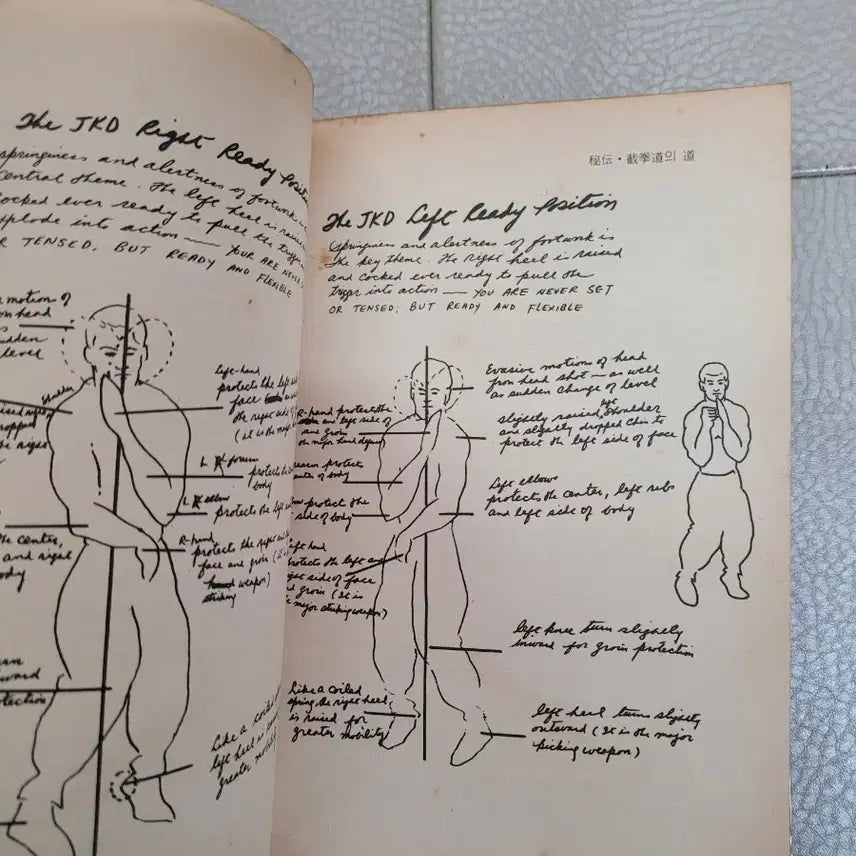 The JKD Right Ready Position
springiness and alertness of footwork is
central theme. The left heel is raised
cocked ever ready to pull the trigger
explode into action — YOUR ARE NEVER
OR TENSED, BUT READY AND FLEXIBLE
motion of
head
sudden
level
shoulder
dropped
the right
the center,
and right
body
Left-hand
protects the left
face
the right side
(it is the
L forearm
protects the
body
L elbow
protects the left
R-hand
protects the right
face and groin (it
hand weapon)
striking
Like a coiled
left heel is
greater
秘伝・截拳道의 道
The JKD Left Ready Position
Springiness and alertness of fortwork is
the key theme. The right heel is raised
and cocked ever ready to pull the
trigger into action — YOU ARE NEVER SET
OR TENSED, BUT READY AND FLEXIBLE
Evasive motions of head
from head shot — as well
as sudden change of level
left
slightly raised shoulder
and slightly dropped chin to
protect the left side of face
Left elbows
protects the center, left ribs
and left side of body
R-hand protect the
and left side of
and groin
protect
of body
protect the
side of body
Left hand
protects the left and
side of face
and groin (It is
major striking weapon)
left knee turn slightly
inward for groin protection
Like a coiled
spring, the right heel
is raised for
greater mobility
left heel turn slightly
outward (It is the major
kicking weapon)